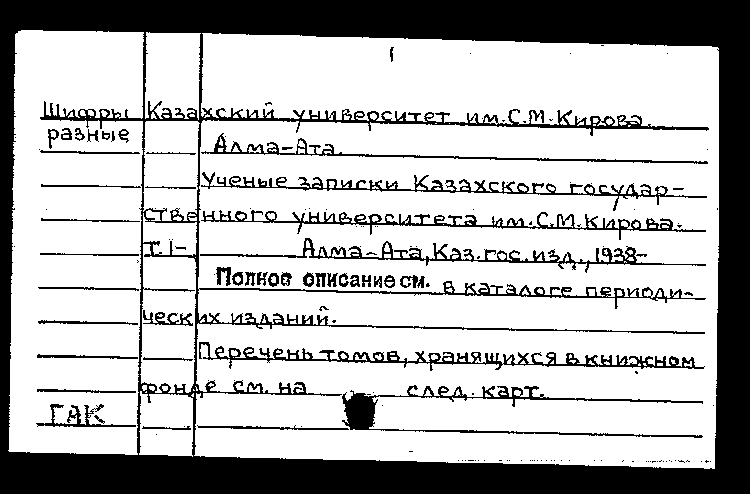 1
Шифры Казахский университет им. С.М. Кирова.
разные
Алма-Ата.
Ученые записки Казахского государ-
ственного университета им. С.М. Кирова.
Т. 1- Алма-Ата, Каз. гос. изд., 1938-
Полное описание см. в каталоге периоди-
ческих изданий.
Перечень томов, хранящихся в книжном
фонде см. на след. карт.
ГАК